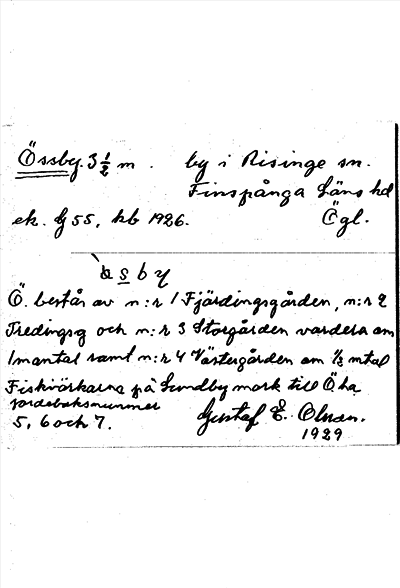 Össby. 3 1/2 m. by i Risinge sn.
Finspånga Läns hd
ek. bj 55, kb 1926. Ögl.
`ɷ s b y
Ö. består av n:r 1 Fjärdingsgården, n:r 2
Tredingsg och n:r 3 Storgården vardera om
1 mantal samt n:r 4 Västergården om 1/2 mtal
Fiskvärkarna på Sundby mark till Öha
jordeboksnummer
5, 6 och 7. Gustaf E. Olsson.
1929